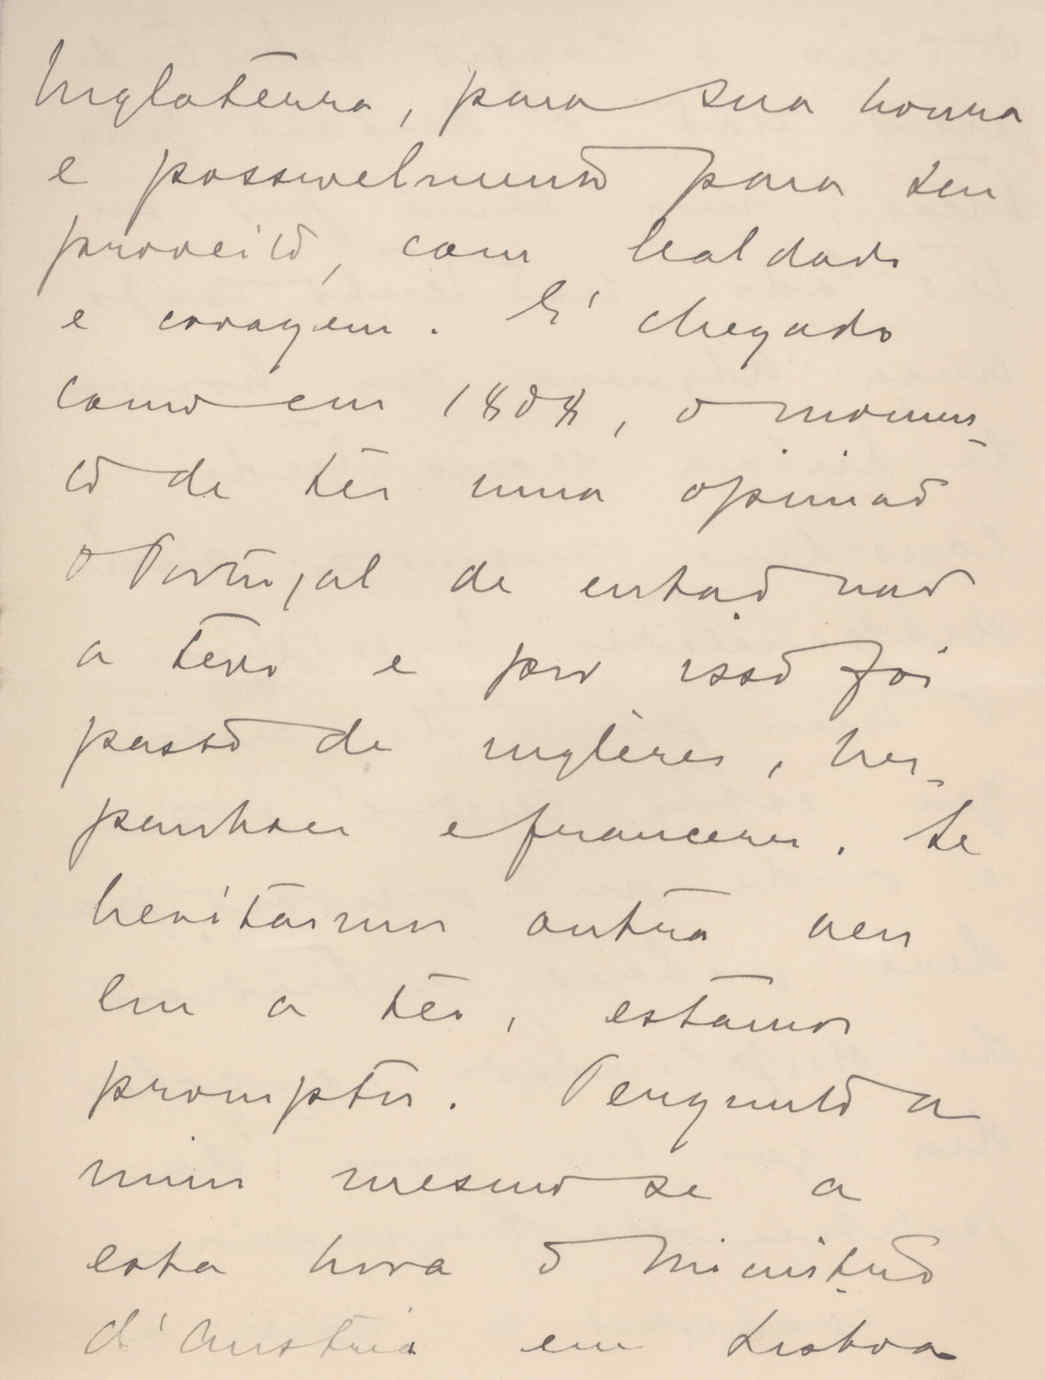 Inglaterra, para sua honra
e possivelmente para seu
proveito, com lealdade
e coragem. É chegado
como em 1808, o momen-
to de ter uma opinião
O Portugal de então não
a teve e por isso foi
pasto de inglêzes, hes-
panhoes e francezes. Se
hesitarmos outra vez
em a ter, estamos
promptos. Pergunto a
mim mesmo se a
esta hora o Ministro
d'Austria em Lisboa